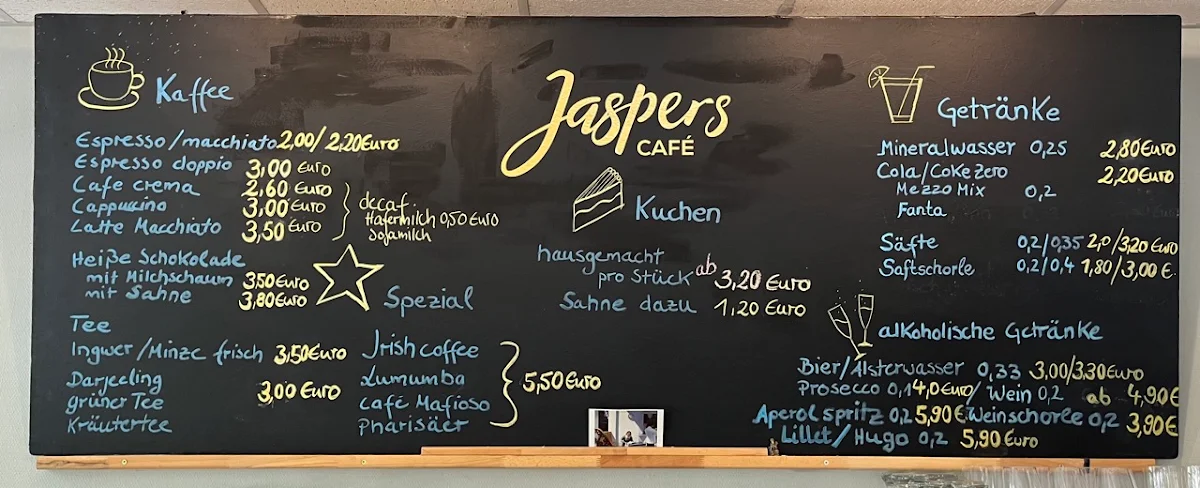 Kaffee
Espresso/macchiato 2,00/2,20Euro
Espresso doppio 3,00 Euro
Cafe crema 2,60 Euro
Cappuccino 3,00 Euro
Latte Macchiato 3,50 Euro
decaf.
Hafermilch 0,50 Euro
Sojamilch
Heiße Schokolade
mit Milchschaum 3,50 Euro
mit Sahne 3,80 Euro
Tee
Ingwer/Minze frisch 3,50 Euro
Darjeeling
grüner Tee 3,00 Euro
Kräutertee
Spezial
Irish coffee
Lumumba
Café Mafioso
Pharisäer
5,50 Euro
Jaspers
CAFÉ
Kuchen
hausgemacht
pro Stück ab 3,20 Euro
Sahne dazu 1,20 Euro
Getränke
Mineralwasser 0,25 2,80 Euro
Cola/Coke zero 2,20 Euro
Mezzo Mix 0,2
Fanta
Säfte 0,2/0,35 2,0/3,20 Euro
Saftschorle 0,2/0,4 1,80/3,00 €
alkoholische Getränke
Bier/Alsterwasser 0,33 3,00/3,30 Euro
Prosecco 0,1 4,0 Euro/ Wein 0,2 ab 4,90 €
Aperol spritz 0,2 5,90 € Weinschorle 0,2 3,90 €
Lillet/Hugo 0,2 5,90 Euro